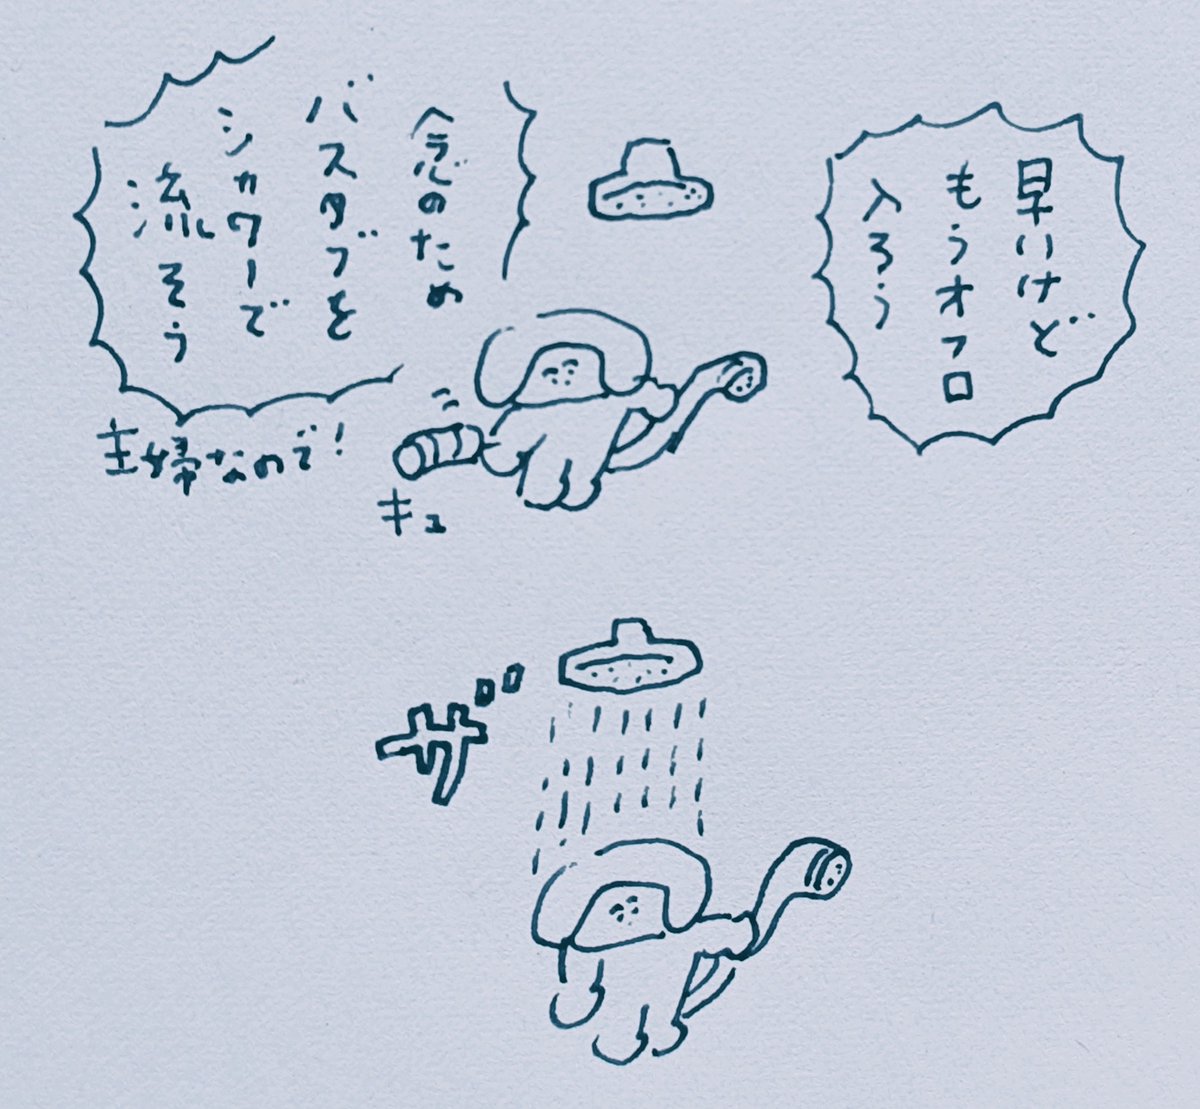 早いけど
もうオフロ
入ろう
念のため
バスタブを
シャワーで
流そう
主婦なので!
キュ
ザ